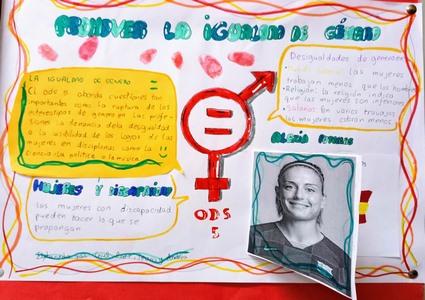 PROMOVER LA IGUALDAD DE GÉNERO
LA IGUALDAD DE GENERO
El ods 5 aborda cuestiones tan
importantes como la ruptura de los
estereotipos de genero en las profe-
siones, la denuncia de la desigualdad
o la visibilidad de los logros de las
mujeres en disciplinas como la
ciencia, la política o la música
Desigualdades de genero en
las mujeres
trabajan menos que los hombres
-Religion: la religión indica
que las mujeres son inferiores
-Salarios: En varios trabajos
las mujeres cobran menos
MUJERES Y DISCAPACIDAD
las mujeres con discapacidad
pueden hacer lo que se
propongan
ODS
5
ALEXIA PUTELLAS